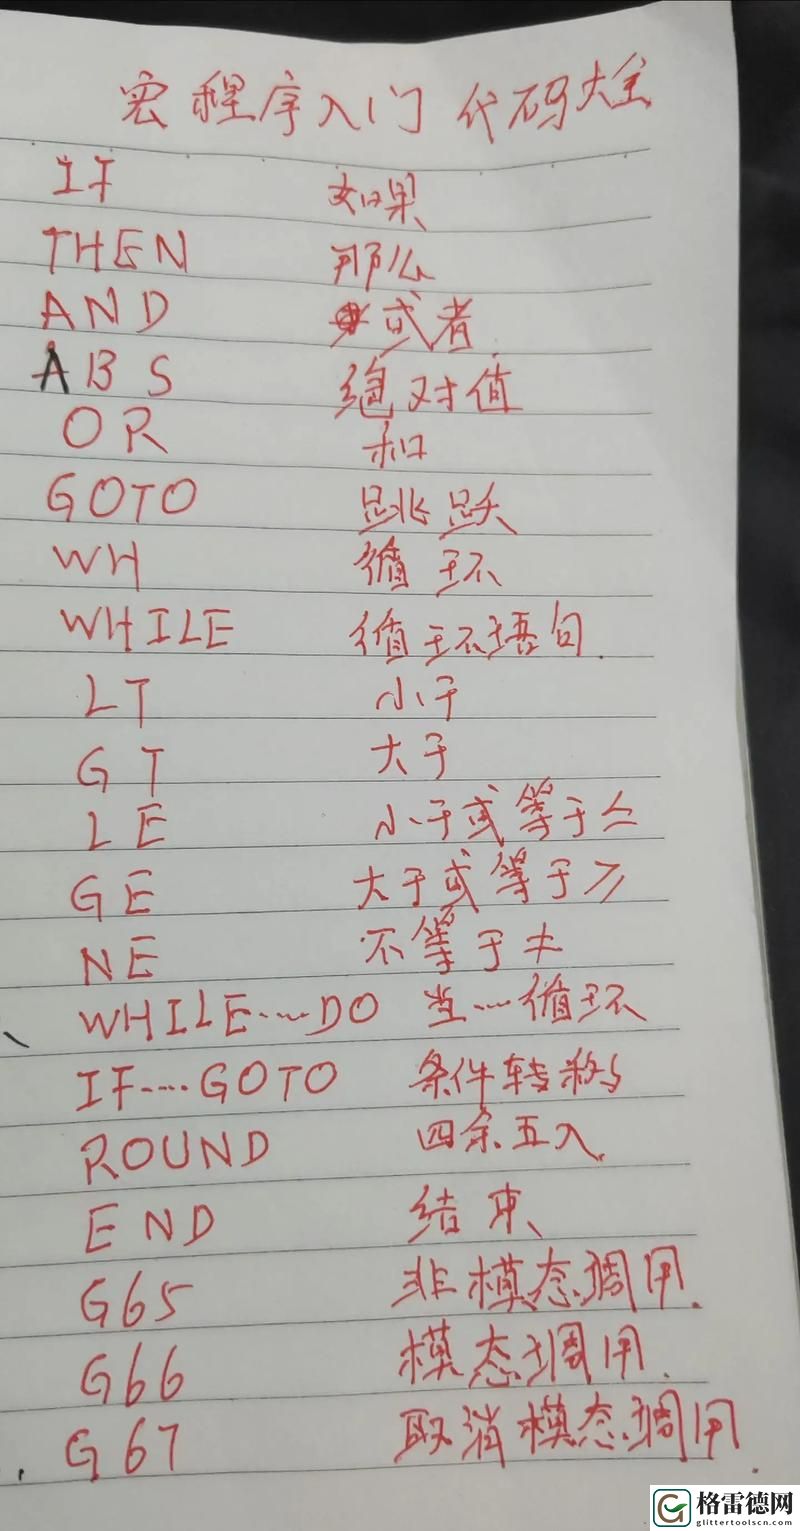 宏程序入门 代码大全
IF 如果
THEN 那么
AND 或者
ABS 绝对值
OR 和
GOTO 跳跃
WH 循环
WHILE 循环语句.
LT 小于
GT 大于
LE 小于或等于≤
GE 大于或等于≥
NE 不等于≠
WHILE……DO 当…循环
IF……GOTO 条件转移
ROUND 四舍五入
END 结束
G65 非模态调用.
G66 模态调用.
G67 取消模态调用.
格雷德网
glittertoolscn.com